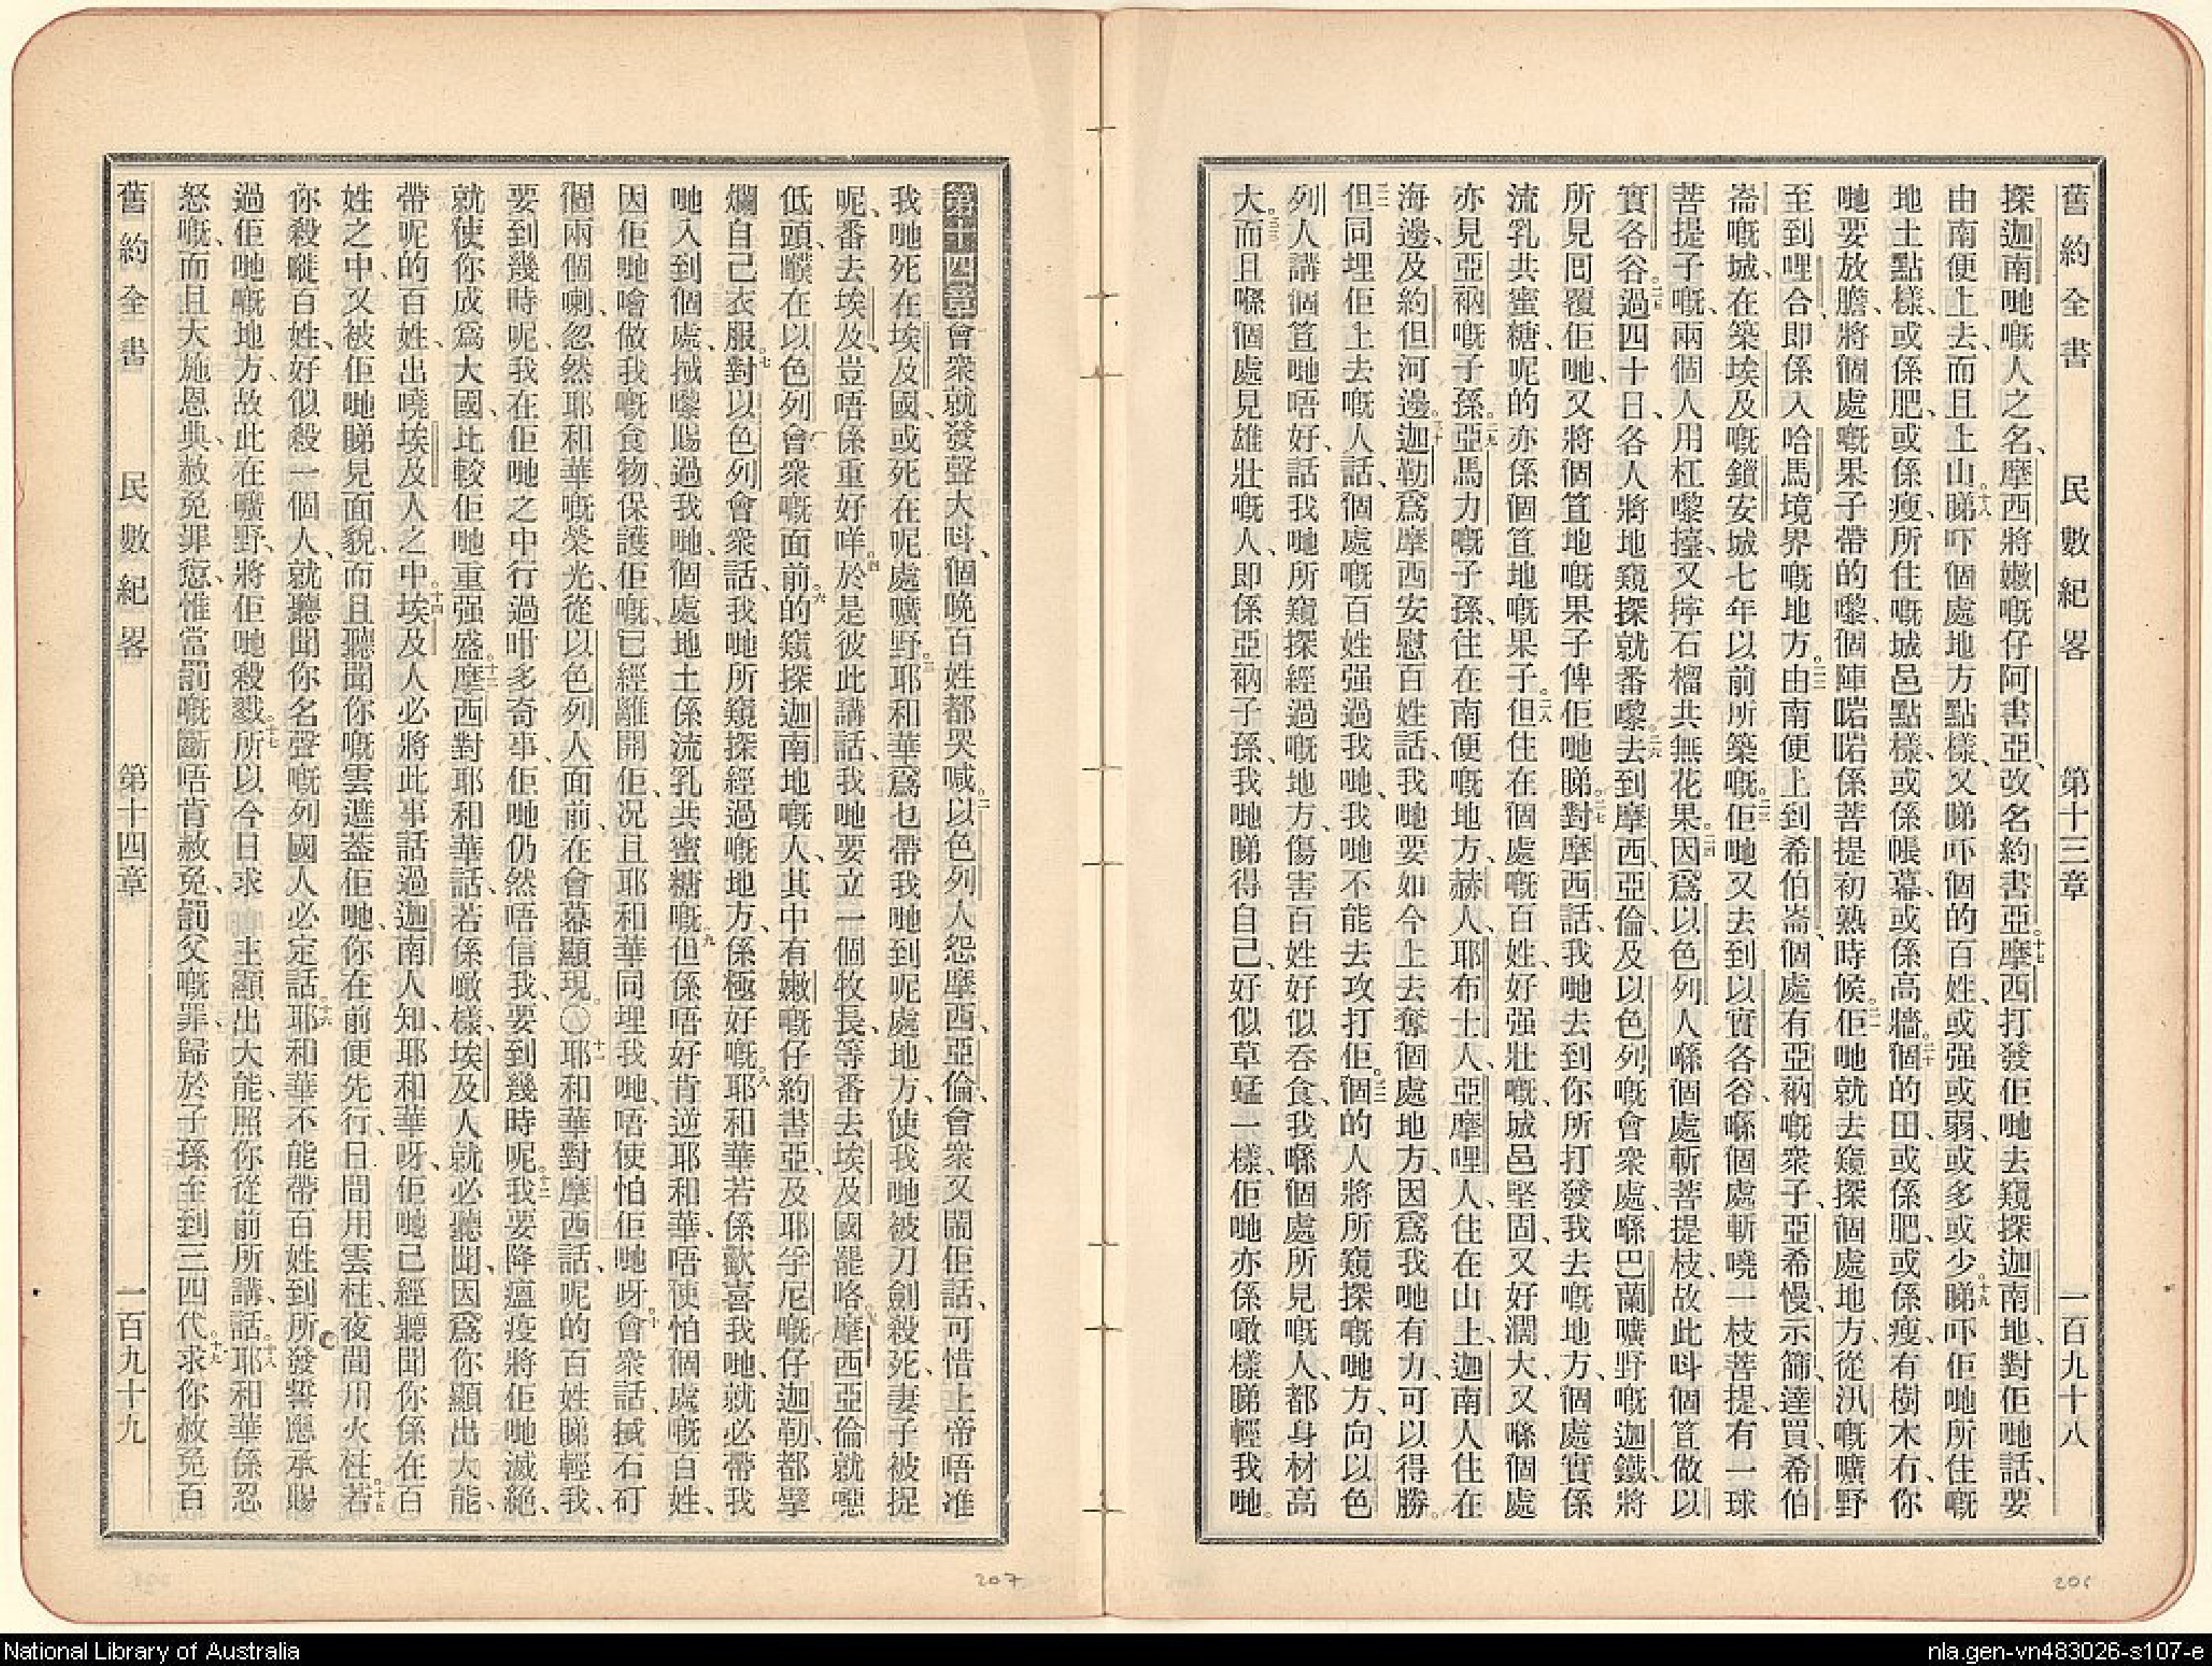 舊約全書 民數紀畧 第十三章 一百九十八
探迦南哋嘅人之名、摩西將嫩嘅仔阿書亞、改名約書亞。十七摩西打發佢哋去窺探迦南地、對佢哋話、要
由南便上去、而且上山。十八睇吓個處地方點樣、又睇吓個的百姓、或强或弱、或多或少。十九睇吓佢哋所住嘅
地土點樣、或係肥、或係瘦、所住嘅城邑點樣、或係帳幕、或係高牆。二十個的田、或係肥、或係瘦、有樹木冇、你
哋要放膽、將個處嘅果子帶的嚟、個陣啱啱係菩提初熟時候。二一佢哋就去窺探個處地方、從汛嘅曠野
至到哩合、即係入哈馬境界嘅地方。二二由南便上到希伯崙、個處有亞衲嘅衆子、亞希慢、示篩、達買、希伯
崙嘅城、在築埃及嘅鎖安城七年以前所築嘅。二三佢哋又去到以實各谷、喺個處斬嘵一枝菩提、有一球
菩提子嘅、兩個人用杠嚟擡、又擰石榴共無花果。二四因爲以色列人喺個處斬菩提枝、故此呌個笪做以
實各谷。二五過四十日、各人將地窺探就番嚟。二六去到摩西、亞倫、及以色列嘅會衆處、喺巴蘭曠野嘅迦鐵、將
所見回覆佢哋、又將個笪地嘅果子俾佢哋睇。二七對摩西話、我哋去到你所打發我去嘅地方、個處實係
流乳共蜜糖、呢的亦係個笪地嘅果子。二八但住在個處嘅百姓、好强壯嘅、城邑堅固、又好濶大、又喺個處
亦見亞衲嘅子孫。二九亞馬力嘅子孫、住在南便嘅地方、赫人、耶布士人、亞摩哩人、住在山上、迦南人住在
海邊、及約但河邊。三十迦勒爲摩西安慰百姓話、我哋要如今上去奪個處地方、因爲我哋有力、可以得勝。
三一但同埋佢上去嘅人話、個處嘅百姓强過我哋、我哋不能去攻打佢。三二個的人將所窺探嘅哋方、向以色
列人講個笪哋唔好、話我哋所窺探經過嘅地方、傷害百姓好似吞食、我喺個處所見嘅人、都身材高
大。三三而且喺個處見雄壯嘅人、即係亞衲子孫、我哋睇得自己、好似草蜢一樣、佢哋亦係噉樣睇輕我哋。
第十四章 會衆就發聲大呌、個晚百姓都哭喊。二以色列人怨摩西、亞倫、會衆又鬧佢話、可惜上帝唔准
我哋死在埃及國、或死在呢處曠野。三耶和華爲乜帶我哋到呢處地方、使我哋被刀劍殺死、妻子被捉
呢、番去埃及、豈唔係重好咩。四於是彼此講話、我哋要立一個牧長、等番去埃及國罷咯。五摩西亞倫就嗯
低頭、㗲在以色列會衆嘅面前。六的窺探迦南地嘅人、其中有嫩嘅仔約書亞、及耶乎尼嘅仔迦勒、都擘
爛自己衣服。七對以色列會衆話、我哋所窺探經過嘅地方、係極好嘅。八耶和華若係歡喜我哋、就必帶我
哋入到個處、攕嚟賜過我哋、個處地土係流乳共蜜糖嘅。九但係唔好背逆耶和華、唔使怕個處嘅百姓、
因佢哋噲做我嘅食物、保護佢嘅、已經離開佢、况且耶和華同埋我哋、唔使怕佢哋呀。十會衆話、攕石矴
個兩個喇、忽然耶和華嘅榮光、從以色列人面前、在會幕顯現。〇十一耶和華對摩西話、呢的百姓睇輕我、
要到幾時呢、我在佢哋之中行過咁多奇事、佢哋仍然唔信我、要到幾時呢。十二我要降瘟疫將佢哋滅絕、
就使你成爲大國、比較佢哋重强盛。十三摩西對耶和華話、若係噉樣、埃及人就必聽聞、因爲你顯出大能、
帶呢的百姓、出嘵埃及人之中。十四埃及人必將此事話過迦南人知、耶和華呀、佢哋已經聽聞你係在百
姓之中、又被佢哋睇見面貌、而且聽聞你嘅雲遮葢佢哋、你在前便先行、日間用雲柱、夜間用火柱。十五若
你殺嘥百姓、好似殺一個人、就聽聞你名聲嘅列國人必定話。十六耶和華不能帶百姓到所發誓應承賜
過佢哋嘅地方、故此在曠野、將佢哋殺戮。十七所以今日求 主顯出大能、照你從前所講、話。十八耶和華係忍
怒嘅、而且大施恩典、赦免罪愆、惟當罰嘅斷唔肯赦免、罰父嘅罪、歸於子孫至到三四代。十九求你赦免百
舊約全書 民數紀畧 第十四章 一百九十九
207
206
National Library of Australia
nla.gen-vn483026-s107-e